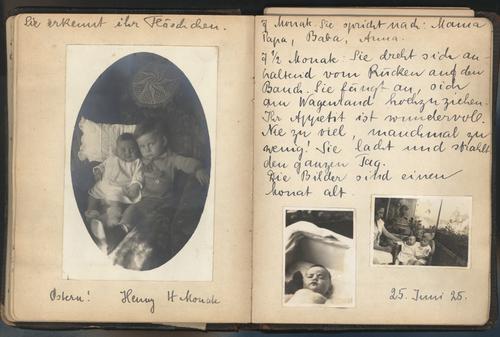 Sie erkennt ihr Fläschchen.
Ostern! Henny 4 Monate
7 Monate. Sie spricht nach: Mama
Papa, Baba, Anna.
7 1/2 Monate: Sie dreht sich an-
haltend vom Rücken auf den
Bauch. Sie fängt an, sich
am Wagenrand hochzuziehen.
Ihr Appetit ist wundervoll.
Nie zu viel, manchmal zu
wenig! Sie lacht und strahlt
den ganzen Tag.
Die Bilder sind einen
Monat alt.
25. Juni 25.